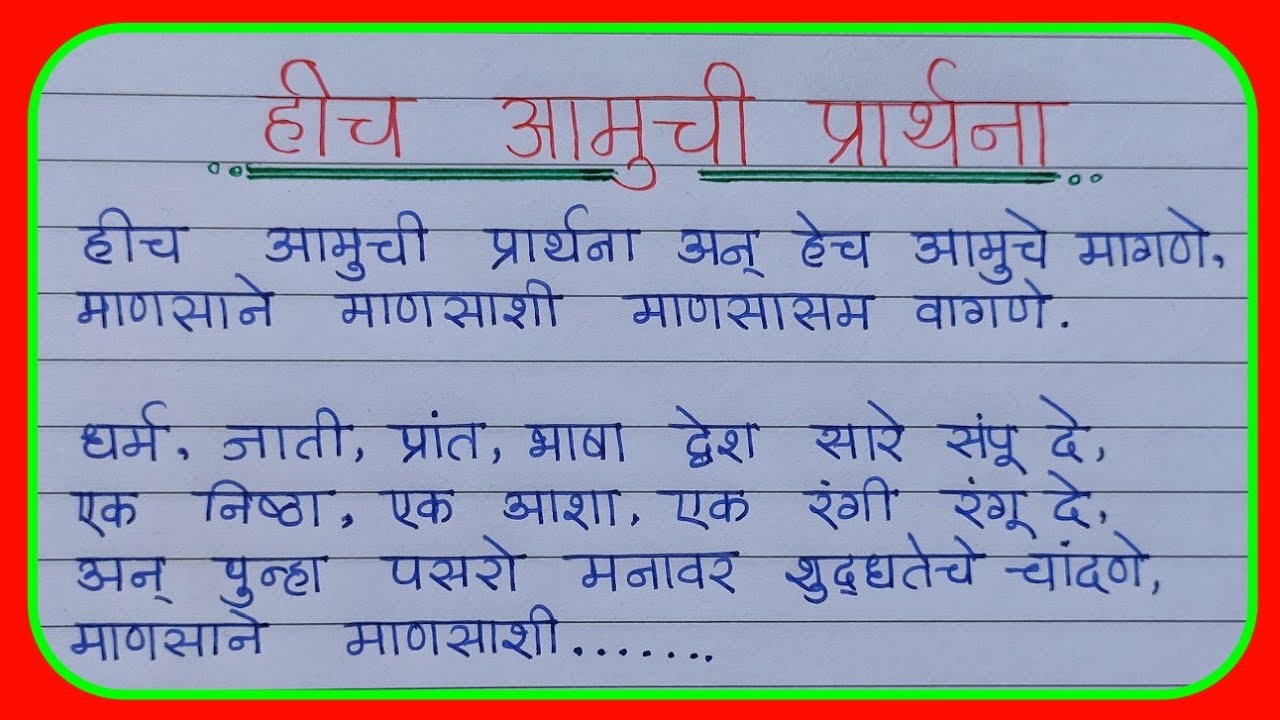 हीच आमुची प्रार्थना
हीच आमुची प्रार्थना अन् हेच आमुचे मागणे,
माणसाने माणसाशी माणसासम वागणे.
धर्म, जाती, प्रांत, भाषा द्वेश सारे संपू दे,
एक निष्ठा, एक आशा, एक रंगी रंगू दे,
अन् पुन्हा पसरो मनावर शुद्धतेचे चांदणे,
माणसाने माणसाशी.......